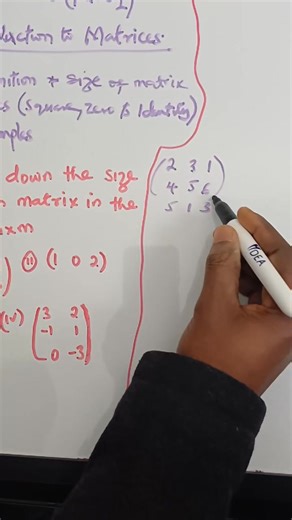 duction to Matrices.
nition * size of matrix
s (square, zero & Identity)
mples
down the size
matrix in the
xm
(ii) (1 0 2)
(iv) (3 2
-1 1
0 -3)
(2 3 1
4 5 6)
5 1 3
MOEA